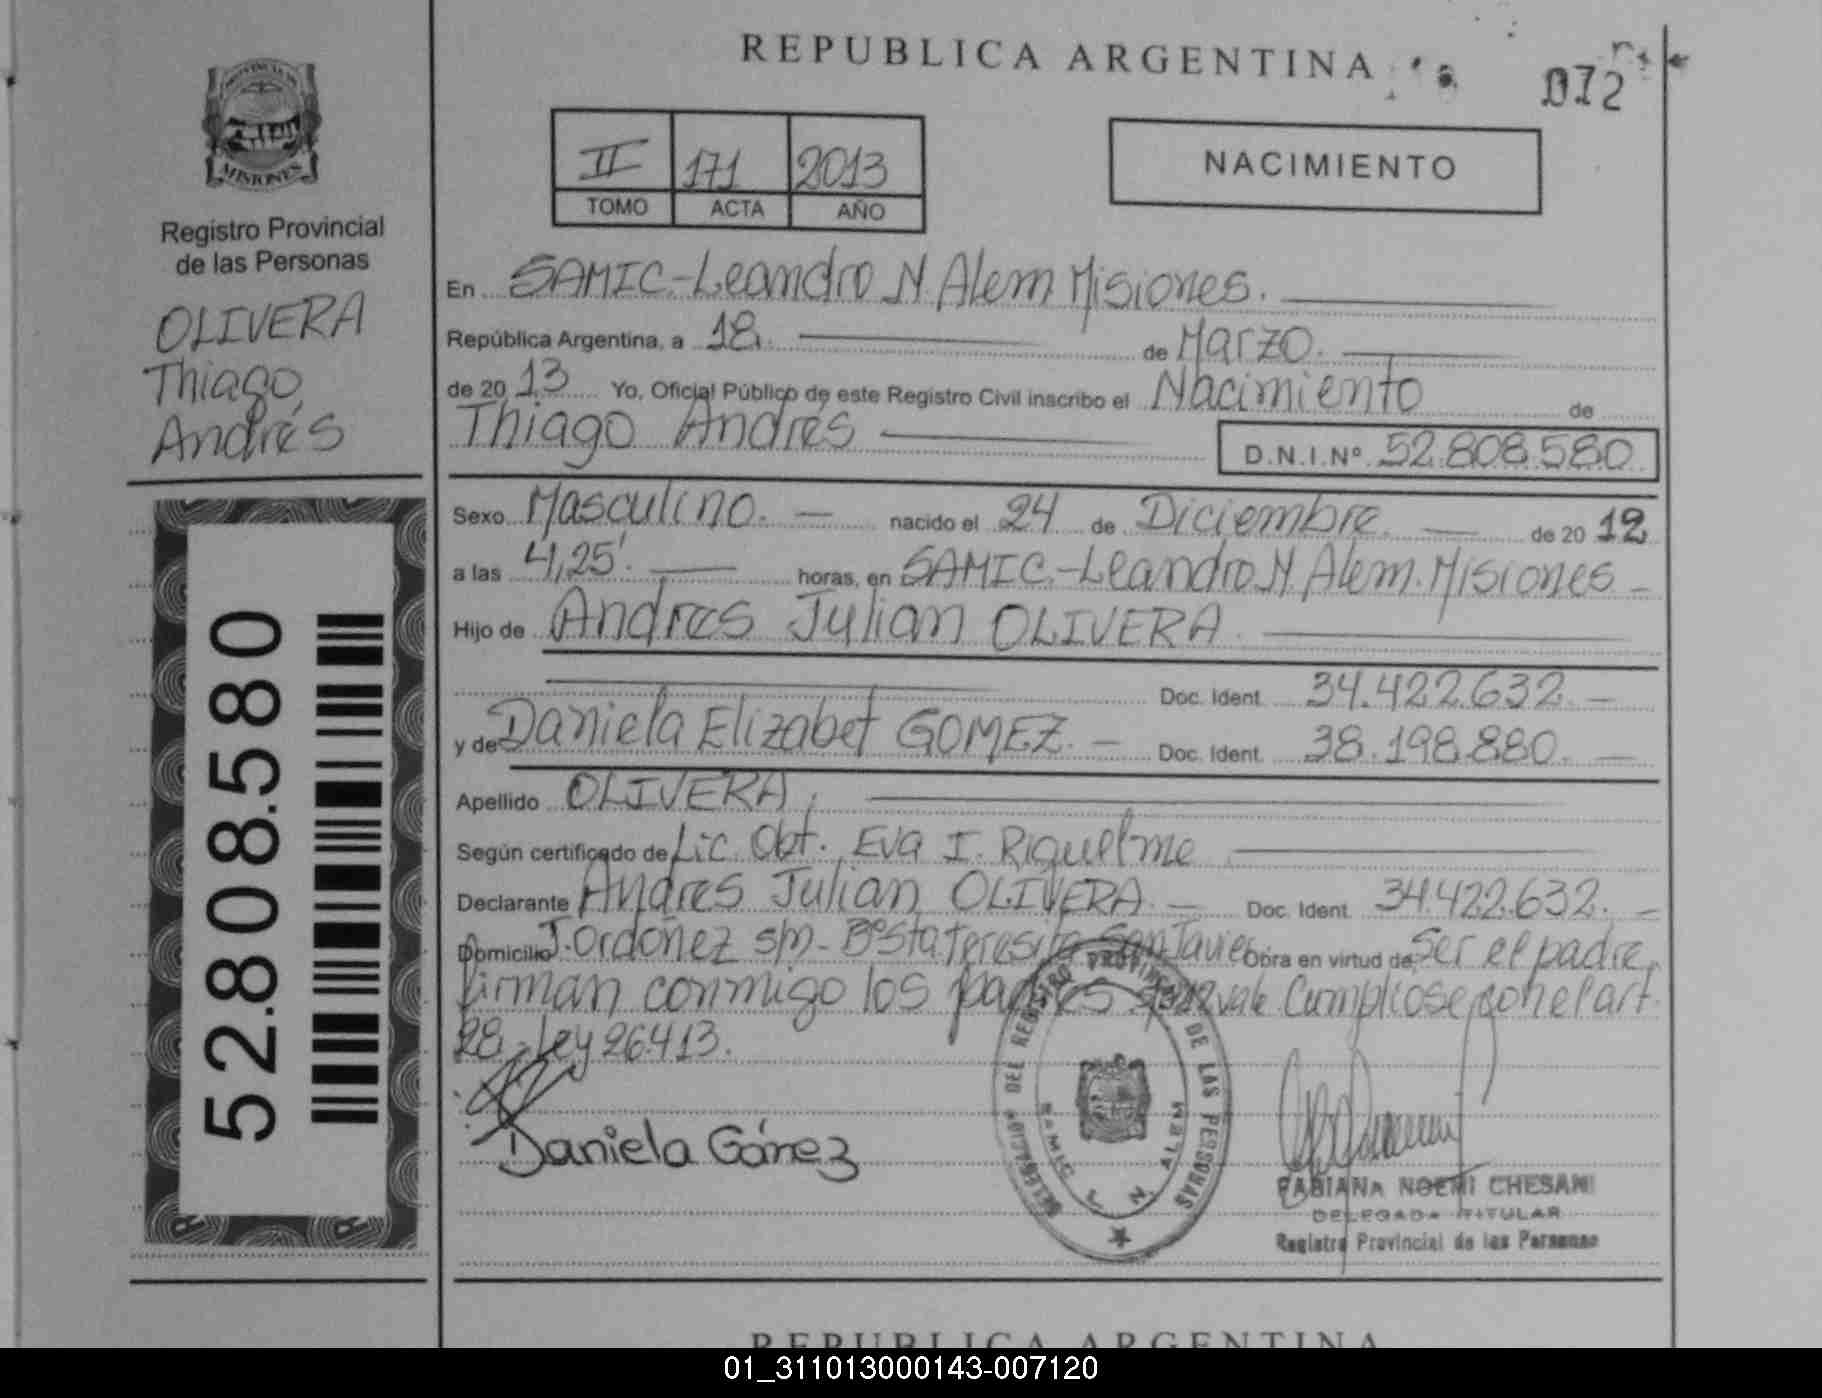 REPUBLICA ARGENTINA
072
PROVINCIA DE
MISIONES
Registro Provincial
de las Personas
OLIVERA
Thiago
Andrés
52.808.580
II 171 2013
TOMO ACTA AÑO
NACIMIENTO
En SAMIC.-Leandro N. Alem Misiones.
República Argentina, a 18. de Marzo.
de 20 13 Yo, Oficial Público de este Registro Civil inscribo el Nacimiento de
Thiago Andrés
D.N.I.Nº 52.808.580
Sexo Masculino. nacido el 24 de Diciembre. de 20 12
a las 4,25'. horas, en SAMIC.-Leandro N. Alem. Misiones
Hijo de Andres Julian OLIVERA.
Doc. Ident. 34.422.632.
y de Daniela Elizabet GOMEZ. Doc. Ident. 38.198.880.
Apellido OLIVERA,
Según certificado de Lic. Obt. Eva I. Riquelme
Declarante Andres Julian OLIVERA. Doc. Ident. 34.422.632.
Domicilio J. Ordoñez s/n- Bº Sta Teresita San Javier Obra en virtud de Ser el padre,
firman conmigo los padres vale Cumpliose con el art.
28 - Ley 26413.
Daniela Gómez
DELEGACION DEL REGISTRO PROVINCIAL DE LAS PERSONAS
SAMIC L. N. ALEM
FABIANA NOEMI CHESANI
DELEGADA TITULAR
Registro Provincial de las Personas
REPUBLICA ARGENTINA
01_311013000143-007120